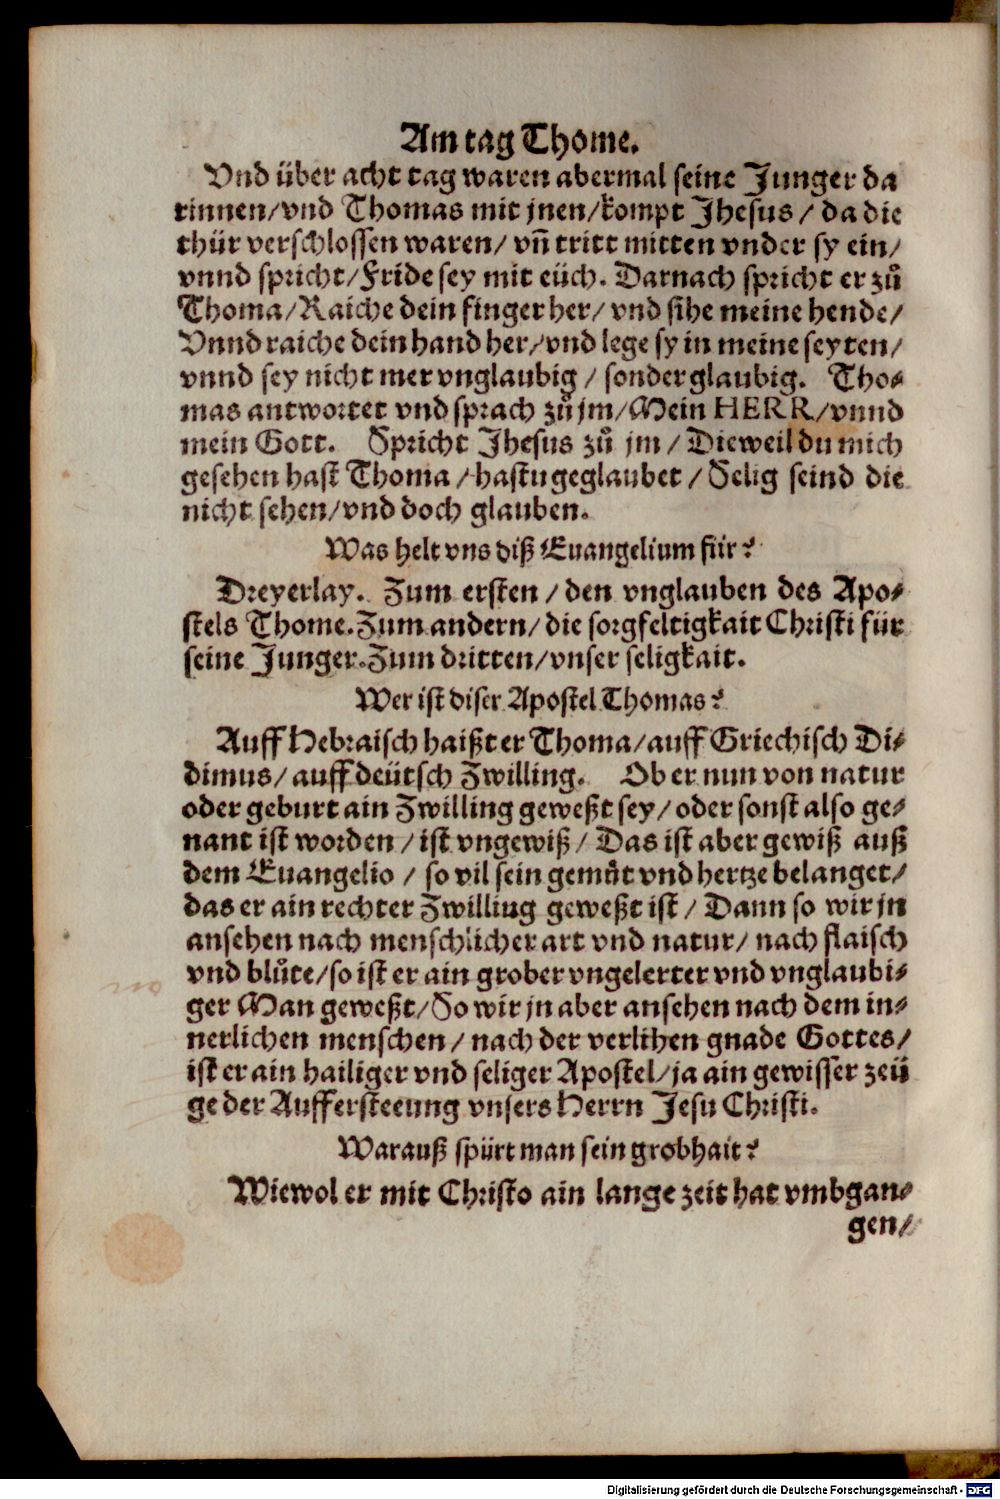 Am tag Thome.
Vnd über acht tag waren abermal seine Junger da
rinnen/vnd Thomas mit jnen/kompt Jhesus/ da die
thür verschlossen waren/ vñ tritt mitten vnder sy ein/
vnnd spricht/Fride sey mit eüch. Darnach spricht er zů
Thoma/Raiche dein finger her/ vnd sihe meine hende/
Vnnd raiche dein hand her/vnd lege sy in meine seyten/
vnnd sey nicht mer vnglaubig / sonder glaubig. Tho⸗
mas antwortet vnd sprach zů jm/Mein HERR/vnnd
mein Gott. Spricht Jhesus zů jm / Dieweil du mich
gesehen hast Thoma /hastu geglaubet / Selig seind die
nicht sehen/vnd doch glauben.
Was helt vns diß Euangelium für?
Dreyerlay. Zum ersten / den vnglauben des Apo⸗
stels Thome. Zum andern/ die sorgfeltigkait Christi für
seine Junger. Zum dritten/vnser seligkait.
Wer ist diser Apostel Thomas?
Auff Hebraisch haißt er Thoma/auff Griechisch Di⸗
dimus/ auff deütsch Zwilling. Ob er nun von natur
oder geburt ain Zwilling geweßt sey/ oder sonst also ge⸗
nant ist worden / ist vngewiß/ Das ist aber gewiß auß
dem Euangelio / so vil sein gemůt vnd hertze belanget/
das er ain rechter Zwilliug geweßt ist/ Dann so wir jn
ansehen nach menschlicher art vnd natur/ nach flaisch
vnd blůte/so ist er ain grober vngelerter vnd vnglaubi⸗
ger Man geweßt/So wir jn aber ansehen nach dem in⸗
nerlichen menschen/ nach der verlihen gnade Gottes/
ist er ain hailiger vnd seliger Apostel/ja ain gewisser zeü
ge der Auffersteeung vnsers Herrn Jesu Christi.
Warauß spürt man sein grobhait?
Wiewol er mit Christo ain lange zeit hat vmbgan⸗
gen/
Digitalisierung gefördert durch die Deutsche Forschungsgemeinschaft - DFG